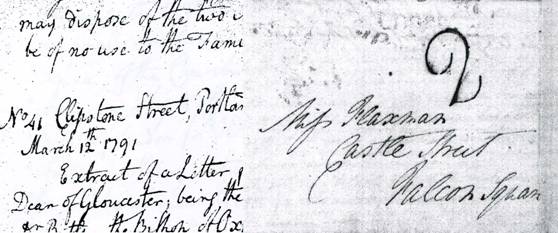 may dispose of the two
be of no use to the Fam
No 41 Clipstone Street, Portla
March 12th 1791
Extract of a Letter
Dean of Gloucester; being the
the Bishop of Ox
2
Miss Flaxman
Castle Street
Falcon Squar